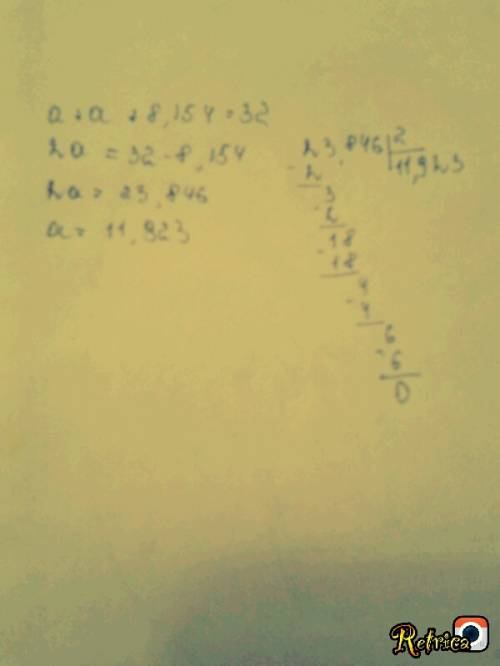 a + a + 8,154 = 32
2a = 32 - 8,154
2a = 23,846
a = 11,923
23,846 2
- 2 11,923
3
- 2
18
- 18
4
- 4
6
- 6
0
Retrica